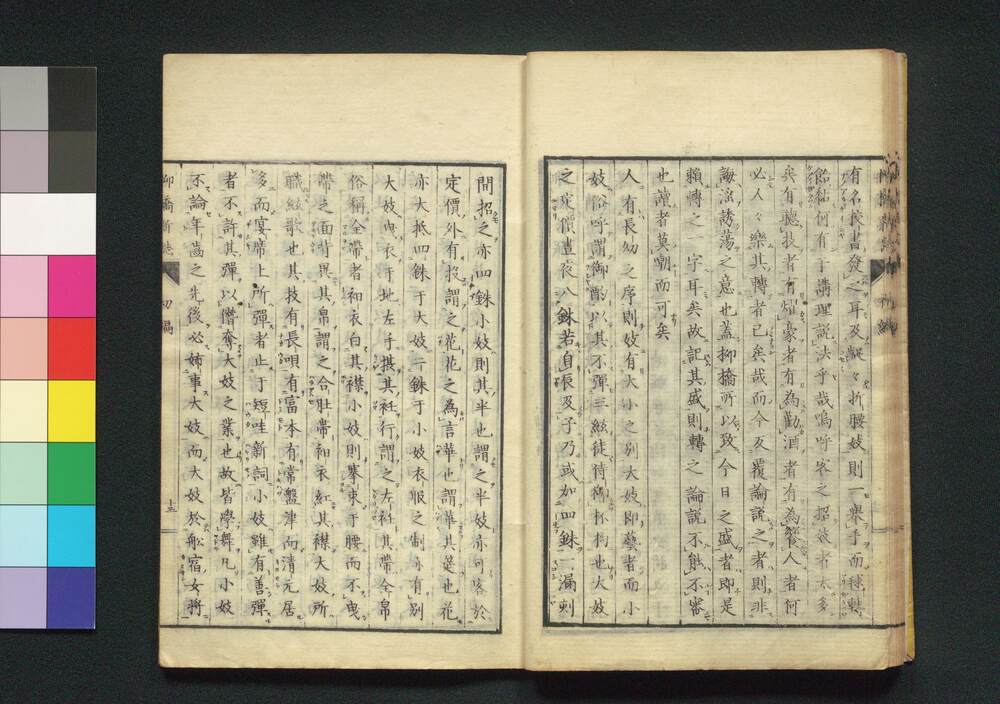 有名校書發之耳及縱々折腰妓則一擧手而穂轉
飴黏何有于講理説法乎哉嗚呼客之招妓者太多
矣有聽技者有耀豪者有為勸酒者有為餐人者何
必人々樂其轉者已矣哉而今反覆論説之者則非
誨淫誘蕩之意也蓋柳橋所以致今日之盛者即是
賴轉之一字耳矣故記其盛則轉之論説不能不審
也讀者莫嘲而可矣
人有長幼之序則妓有大小之別大妓即藝者而小
妓俗呼謂御酌以其不彈三絃徒侍御杯杓也大妓
之定價晝夜八銖若自辰及子乃或加四銖一漏刻
間招之亦四銖小妓則其半也謂之半妓亦可客於
定價外有投謂之花花之為言華也謂華其筵也花
亦大抵四銖于大妓二銖于小妓衣服之制亦有別
大妓曳衣于地左手摸其衽行謂之左衽其帶全帛
俗稱全帶者和衣白其襟小妓則搴束于腰而不曳
帶之面背異其帛謂之合肚帶和衣紅其襟大妓所
職絃歌也其技有長唄有富本有常盤津而清元居
多而宴席上所彈者止于短哇新詞小妓雖有善彈
者不許其彈以僭奪大妓之業也故皆學舞凡小妓
不論年齒之先後必姉事大妓而大妓於舩宿女將
柳橋新誌
初編